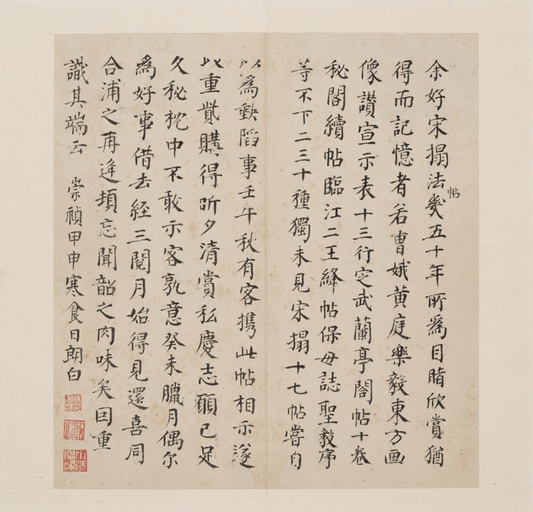 余好宋搨法帖幾五十年所為目睹欣賞猶
得而記憶者若曹娥黃庭樂毅東方画
像讚宣示表十三行定武蘭亭閣帖十卷
秘閣續帖臨江二王絳帖保母誌聖教序
等不下二三十種獨未見宋搨十七帖嘗自
以為缺陷事壬午秋有客攜此帖相示遂
以重貲購得昕夕清賞私慶志願已足
久秘枕中不敢示客孰意癸未臘月偶尔
為好事借去経三閱月始得見還喜同
合浦之再逢頊忘聞韶之肉味矣因重
識其端云 崇禎甲申寒食日朗白